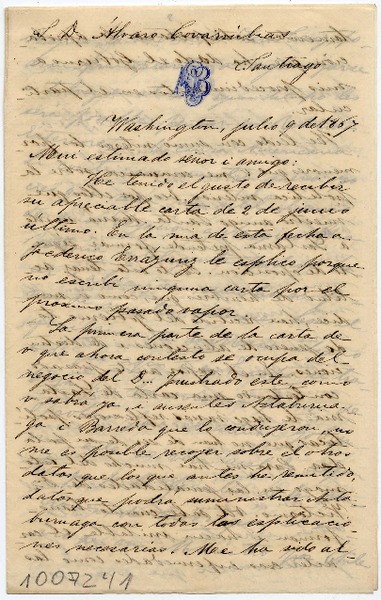 S. D. Álvaro Covarrúbias
Santiago
Washington, julio 9 de 1867
Mui estimado señor i amigo:
He tenido el gusto de recibir
su apreciable carta de 2 de junio
último. En la mia de esta fecha a
Federico Errázuriz le esplico porque
no escribí ninguna carta por el
próximo pasado vapor.
La primera parte de la carta de
V que ahora contesto se ocupa del
negocio del D... frustrado este, como
V sabra ya, i ausentes Astaburua-
ga i Barreda que lo condujeron, no
me es posible recojer sobre el otros
datos que los que antes he remitido,
datos que podrá suministrar Asta-
buruaga con todas las esplicacio-
nes necesarias. Me ha sido al-
1007241